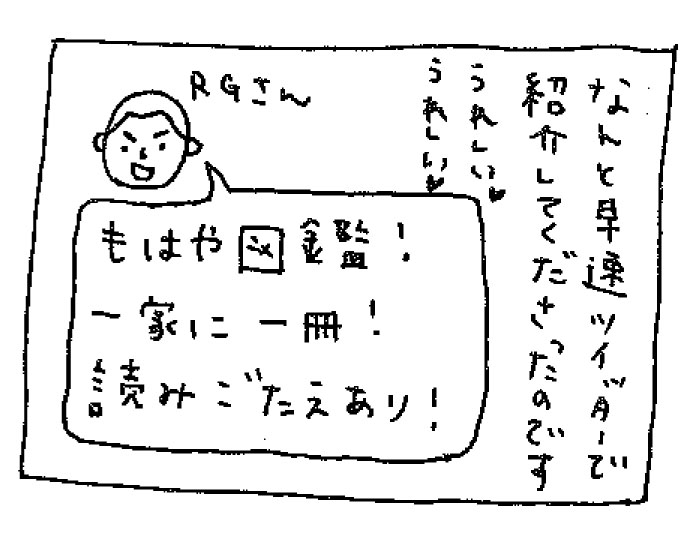 なんと早速ツイッターで
紹介してくださったのです
うれしい♥
うれしい♥
RGさん
もはや図鑑！
一家に一冊！
読みごたえあり！